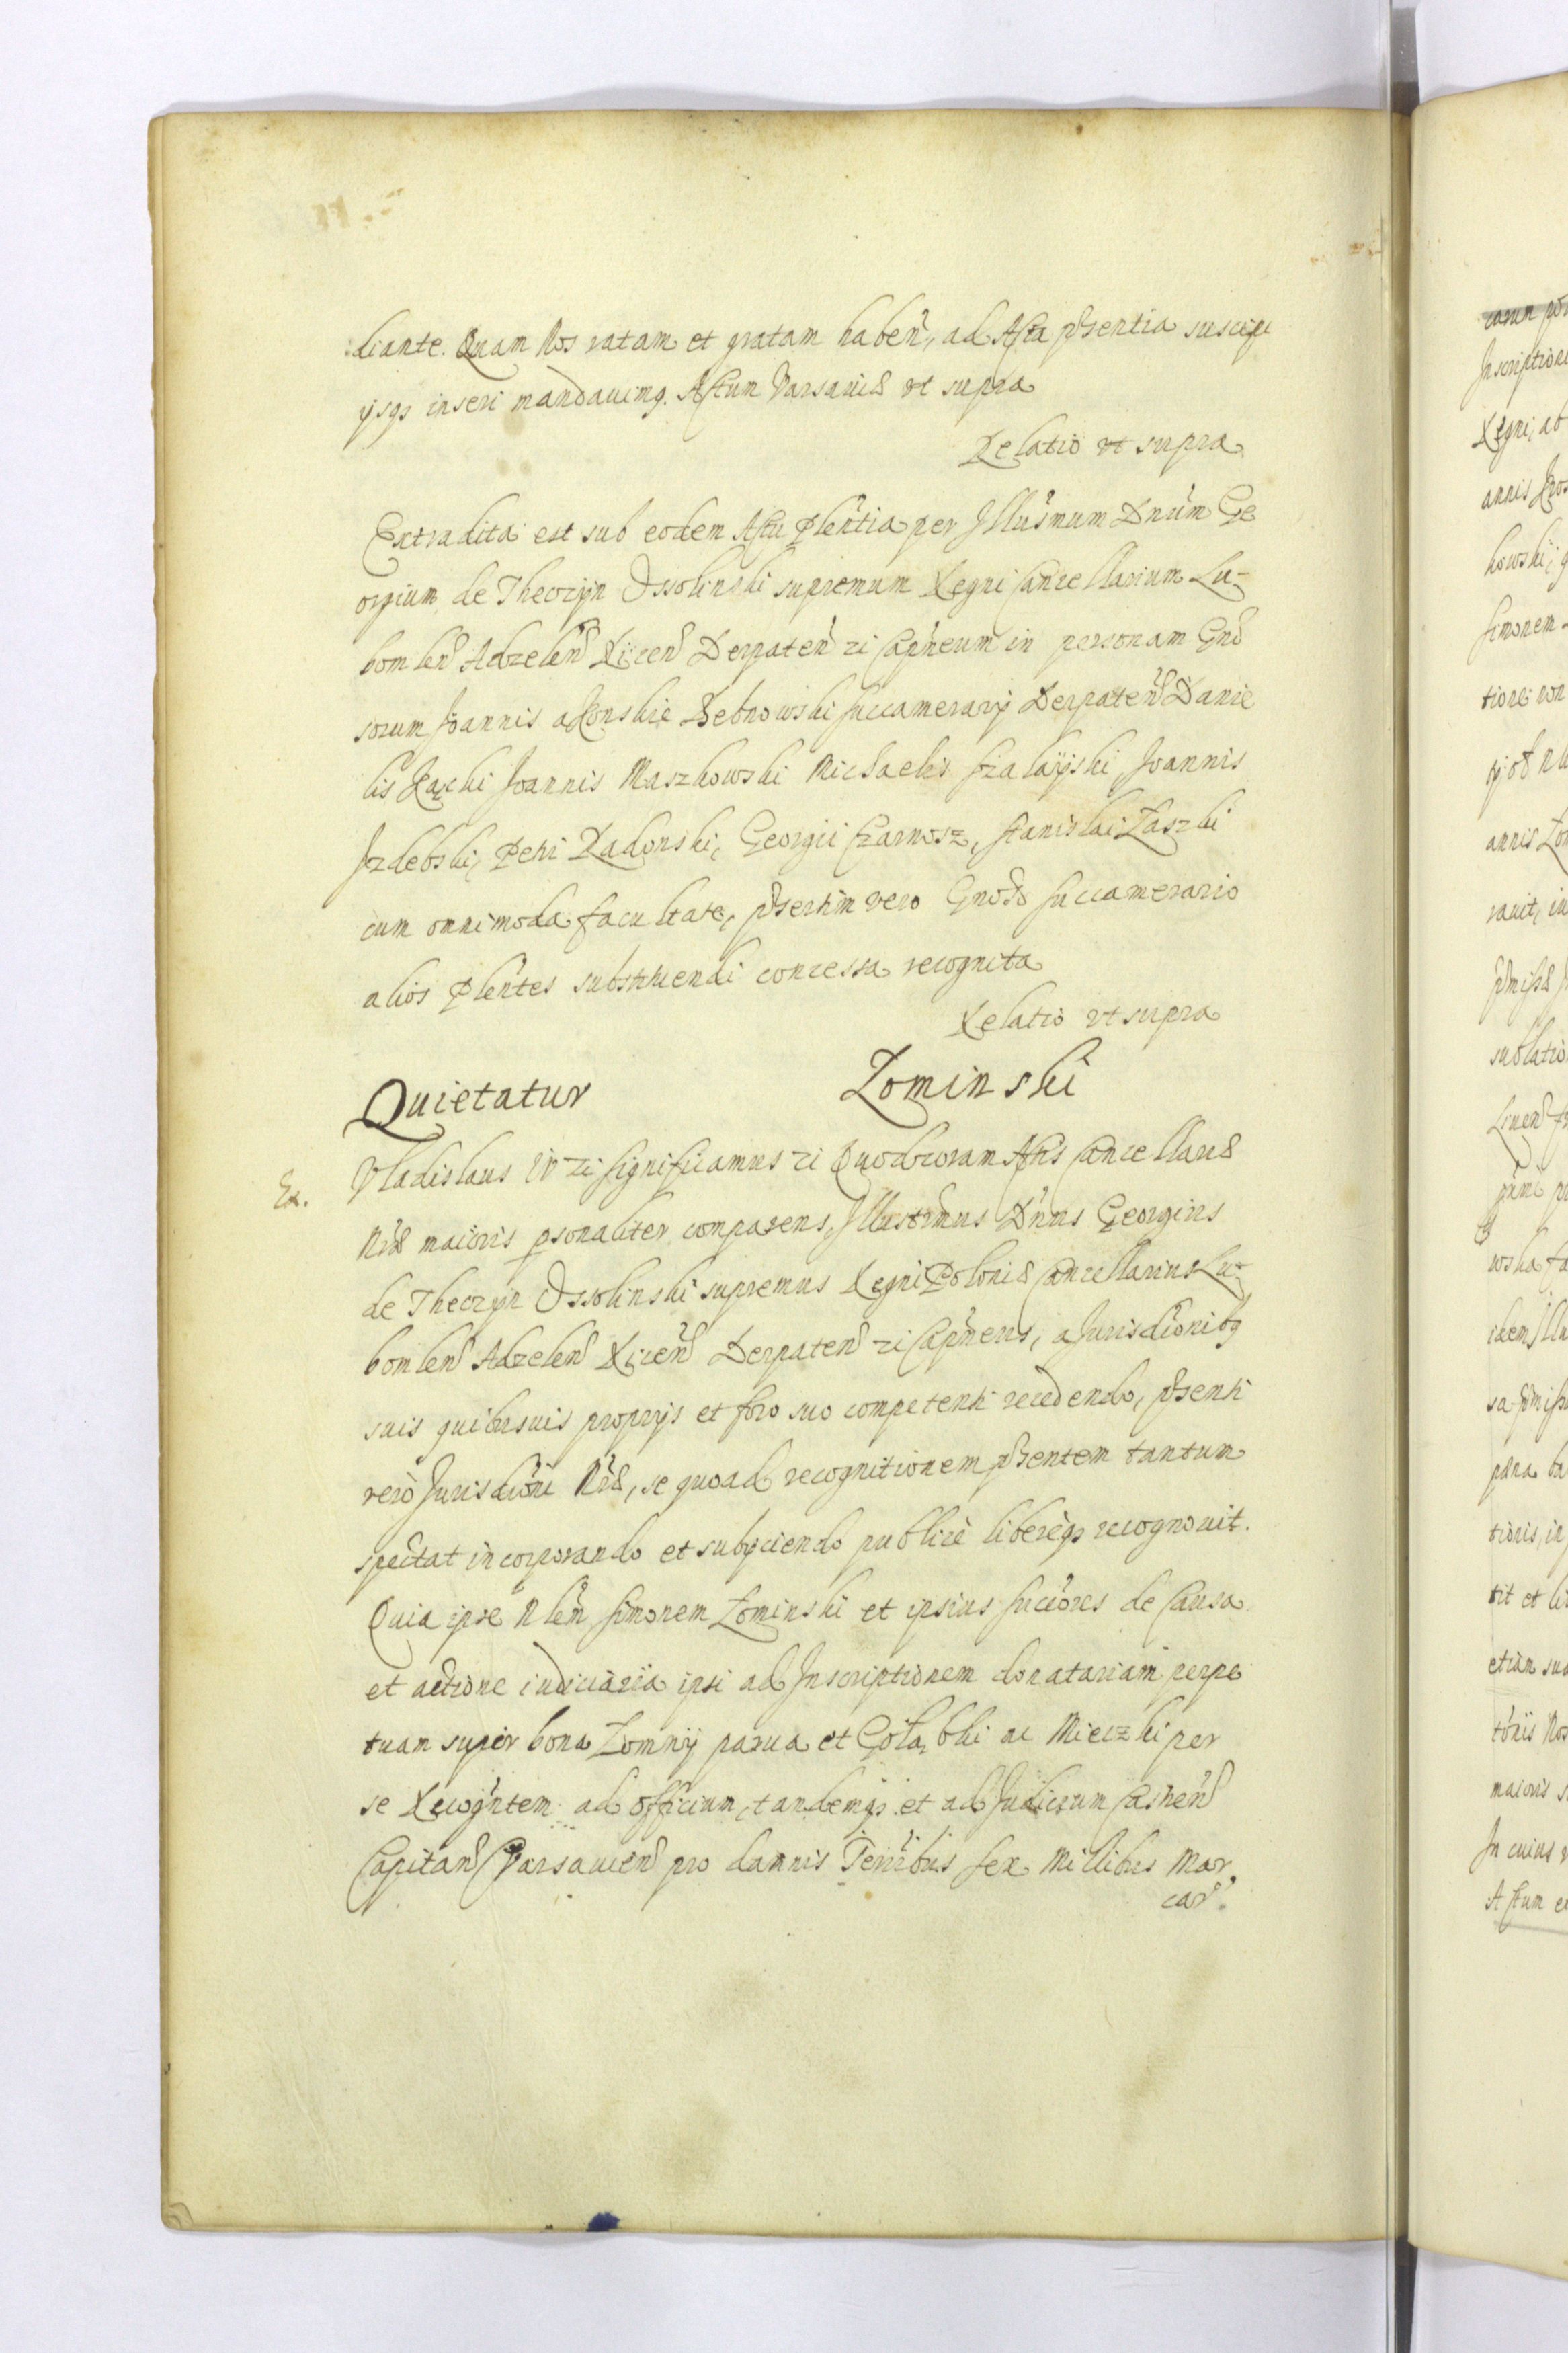 diante. Quam Nos ratam et gratam haben̄, ad Acta pn̄sentia suscipi
ijsq3 inseri mandauimq. Actum Varsauiæ vt supra
Relatio vt supra
Extradita est sub eodem Actu Plen̄tia per Illūsmum Dnūm Ge
orgium de Theczyn Ossolinski supremum Regni Cancellarium Lu-
bomlen̄ Adzelen̄ Ricen̄ Derpaten̄ zc Capn̄eum in personam Gn̄o
sorum Joannis a Konskie Debnowski Succamerarij Derpaten̄ Danie
lis Joannis Maszkowski Michaelis Joannis
Jzdebski, Petri Radonski, Georgii Czarnosz, Stanislai Łaszki
cum omnimoda facultate, pn̄sertim vero Gnōso Succamerario
alios Plēntes substituendi concessa recognita
Relatio vt supra
Quietatur Łominski
Ex. Vladislaus IV zc Significamus zc Quod coram Actis Cancellariæ
Nrǣ maioris psonaliter comparens, Illustrm̄us Dn̄us Georgius
de Theczyn Ossolinski supremus Regni Poloniæ Cancellarius Lu-
bomlen̄ Adzelen̄ Ricen̄ Derpaten̄ zc Capn̄eus, a Jurisdiōnibq
suis quibusuis proprijs et foro suo competenti recedendo, pn̄senti
verò Jurisdiōni Nrǣ, se quoad recognitionem pn̄sentem tantum
spectat incorporando et subijciendo publicè liberèq3 recognouit.
Quia ipse Nlēm Simonem Łominski et ipsius Succōres de Causa
et actione iudiciaria ipsi ad Inscriptionem donatariam perpe
tuam super bona Łomny parua et Gołąbki ac Mieczki per
se Recogn̄tem ad officium, tandemq3 et ad Judicium Castren̄
Capitan̄ Varsauien̄ pro damnis Sex Millibus Mar,
car̄.